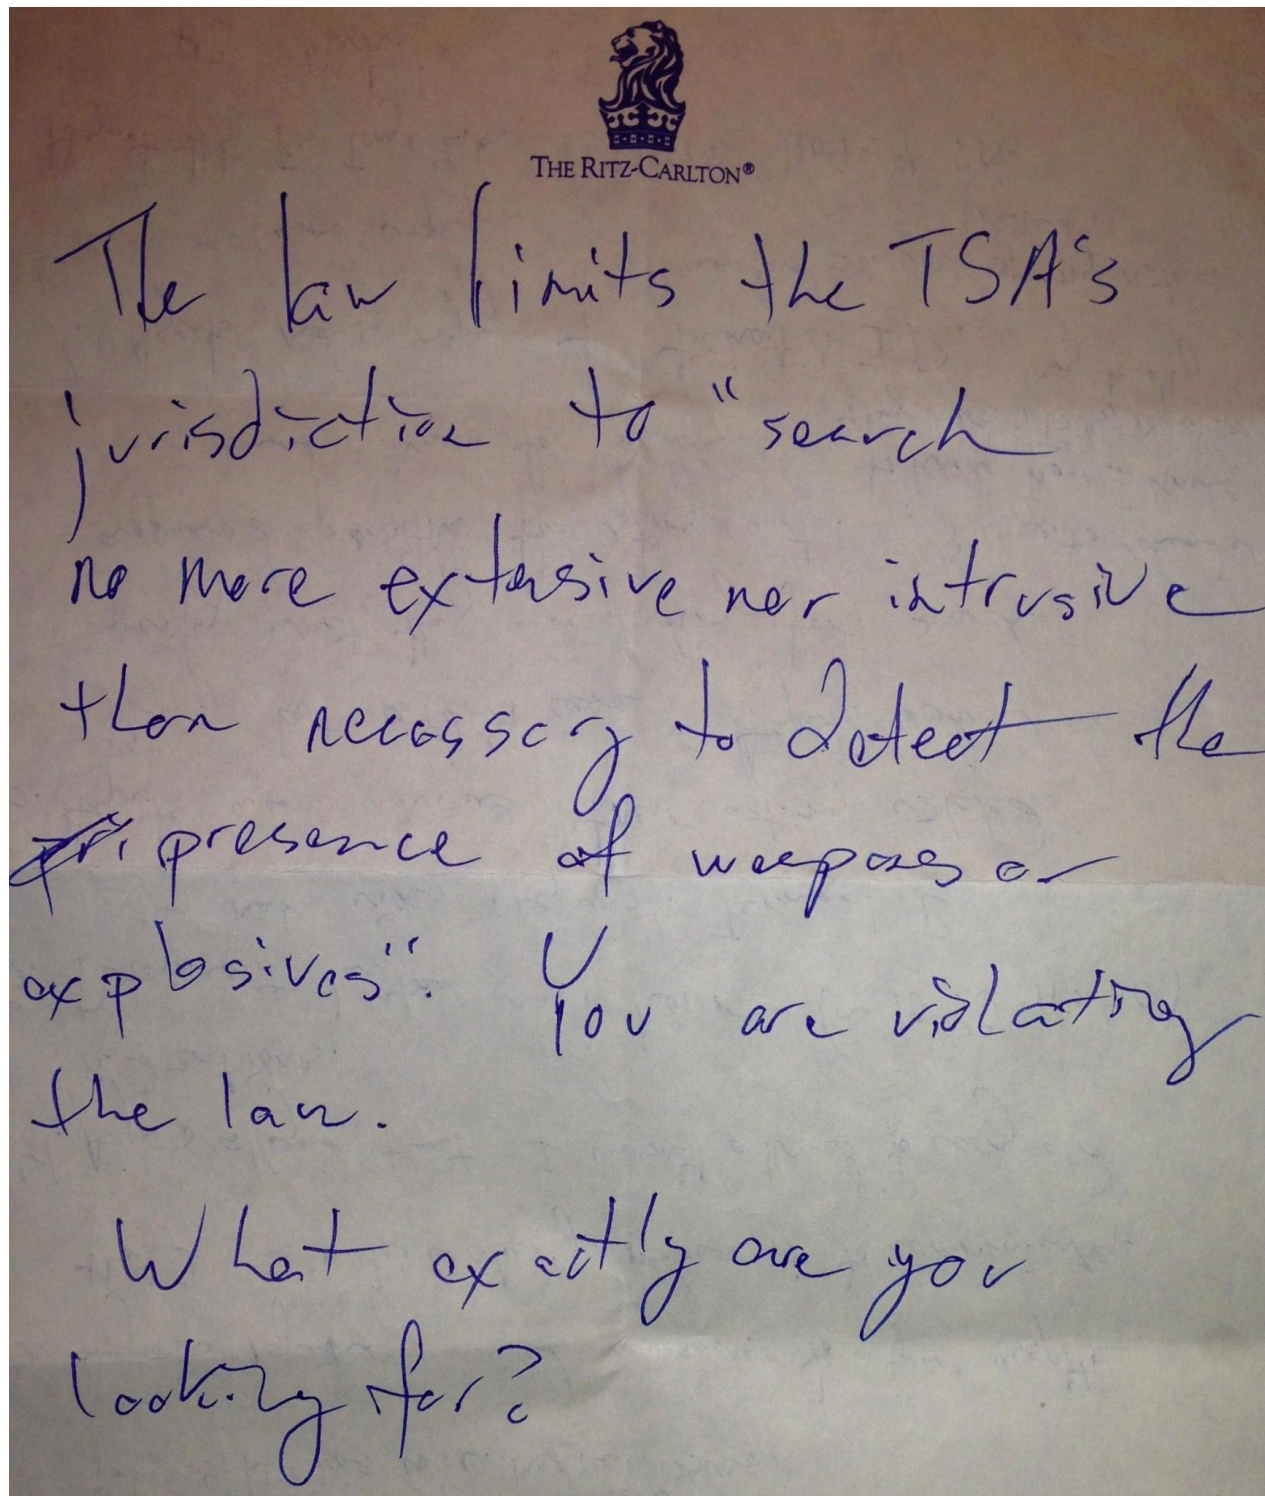 THE RITZ-CARLTON®
The law limits the TSA's
jurisdiction to "search
no more extensive nor intrusive
than necessary to detect the
presence of weapons or
explosives". You are violating
the law.
What exactly are you
looking for?